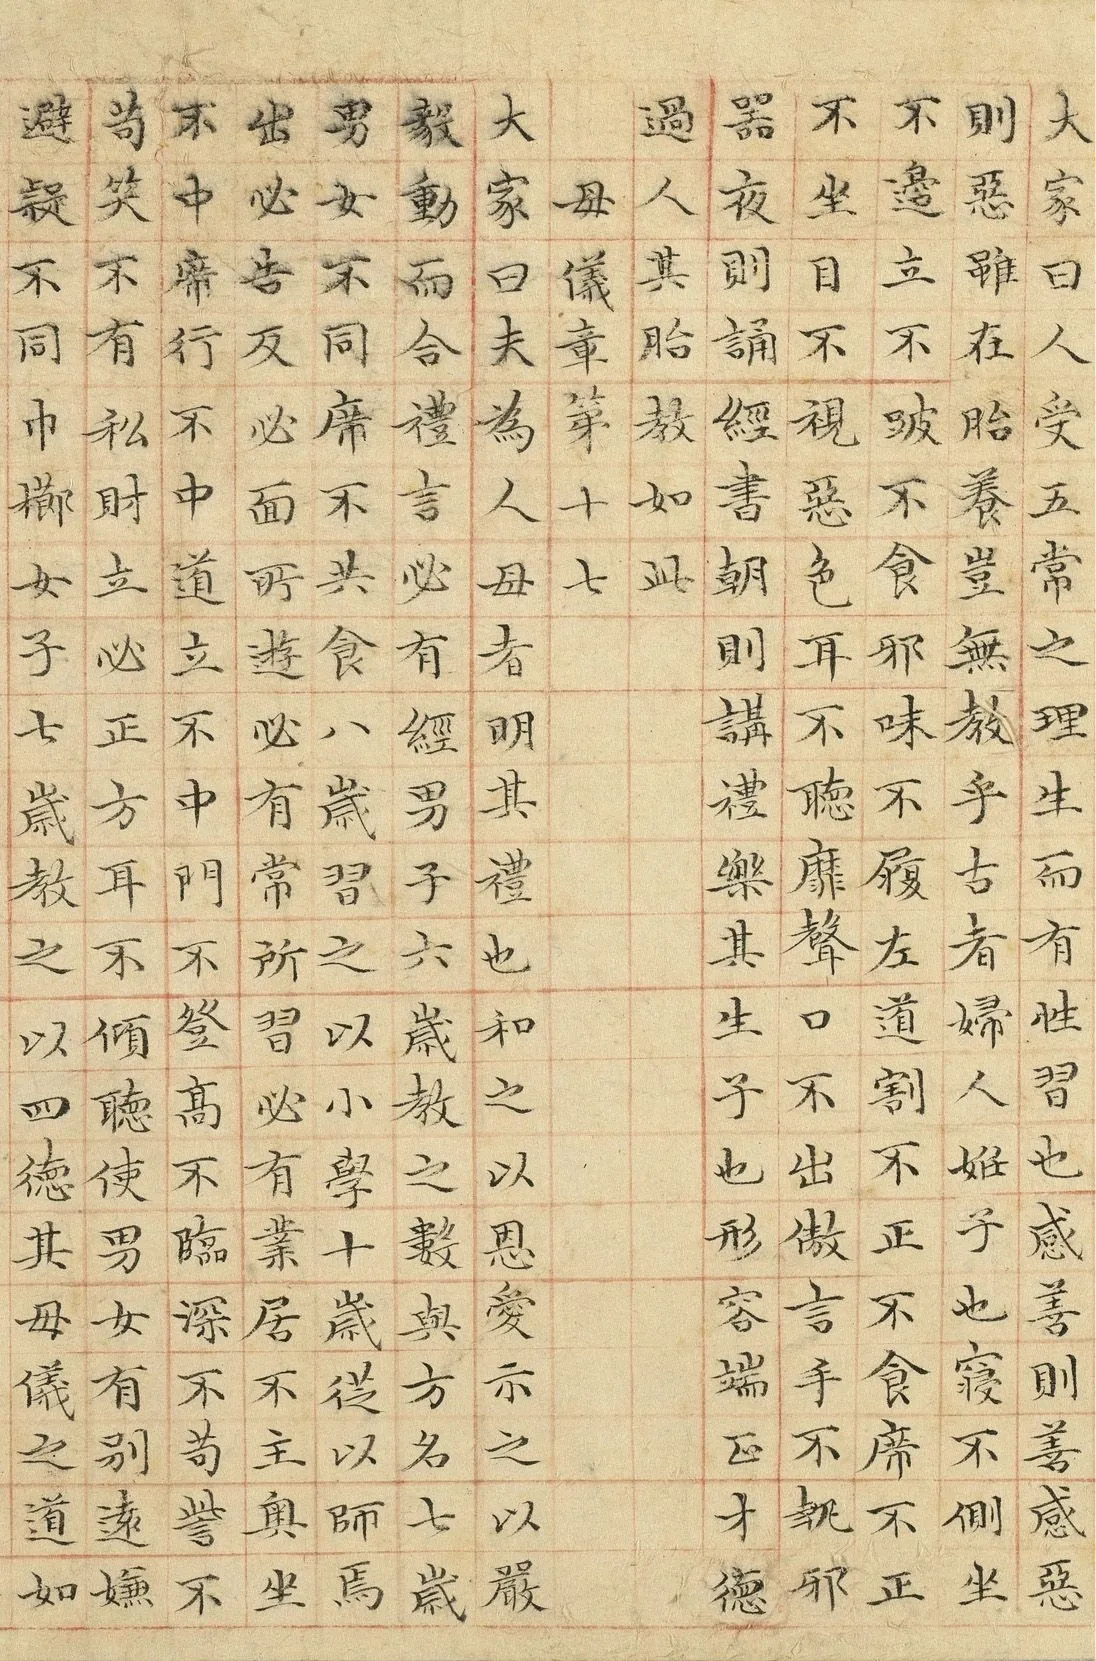 大家曰人受五常之理生而有性習也感善則善感惡
則惡雖在胎養豈無教乎古者婦人妊子也寢不側坐
不邊立不跛不食邪味不履左道割不正不食席不正
不坐目不視惡色耳不聽靡聲口不出傲言手不執邪
器夜則誦經書朝則講禮樂其生子也形容端正才德
過人其胎教如此
母儀章第十七
大家曰夫為人母者明其禮也和之以恩愛示之以嚴
毅動而合禮言必有經男子六歲教之數與方名七歲
男女不同席不共食八歲習之以小學十歲從以師焉
出必告反必面所遊必有常所習必有業居不主奧坐
不中席行不中道立不中門不登高不臨深不苟訾不
苟笑不有私財立必正方耳不傾聽使男女有別遠嫌
避疑不同巾櫛女子七歲教之以四德其母儀之道如